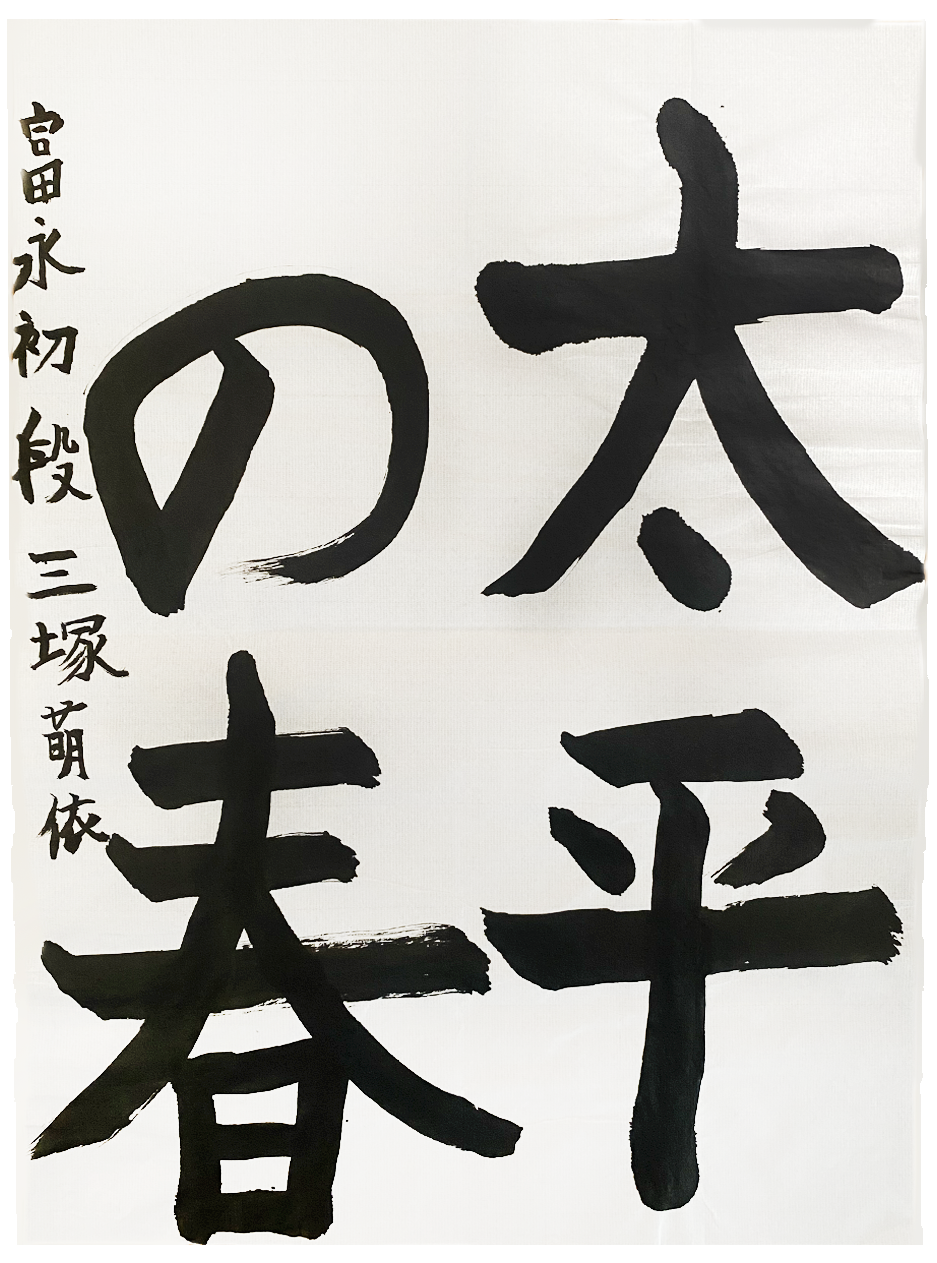 太平
の春
富永初段三塚萌依